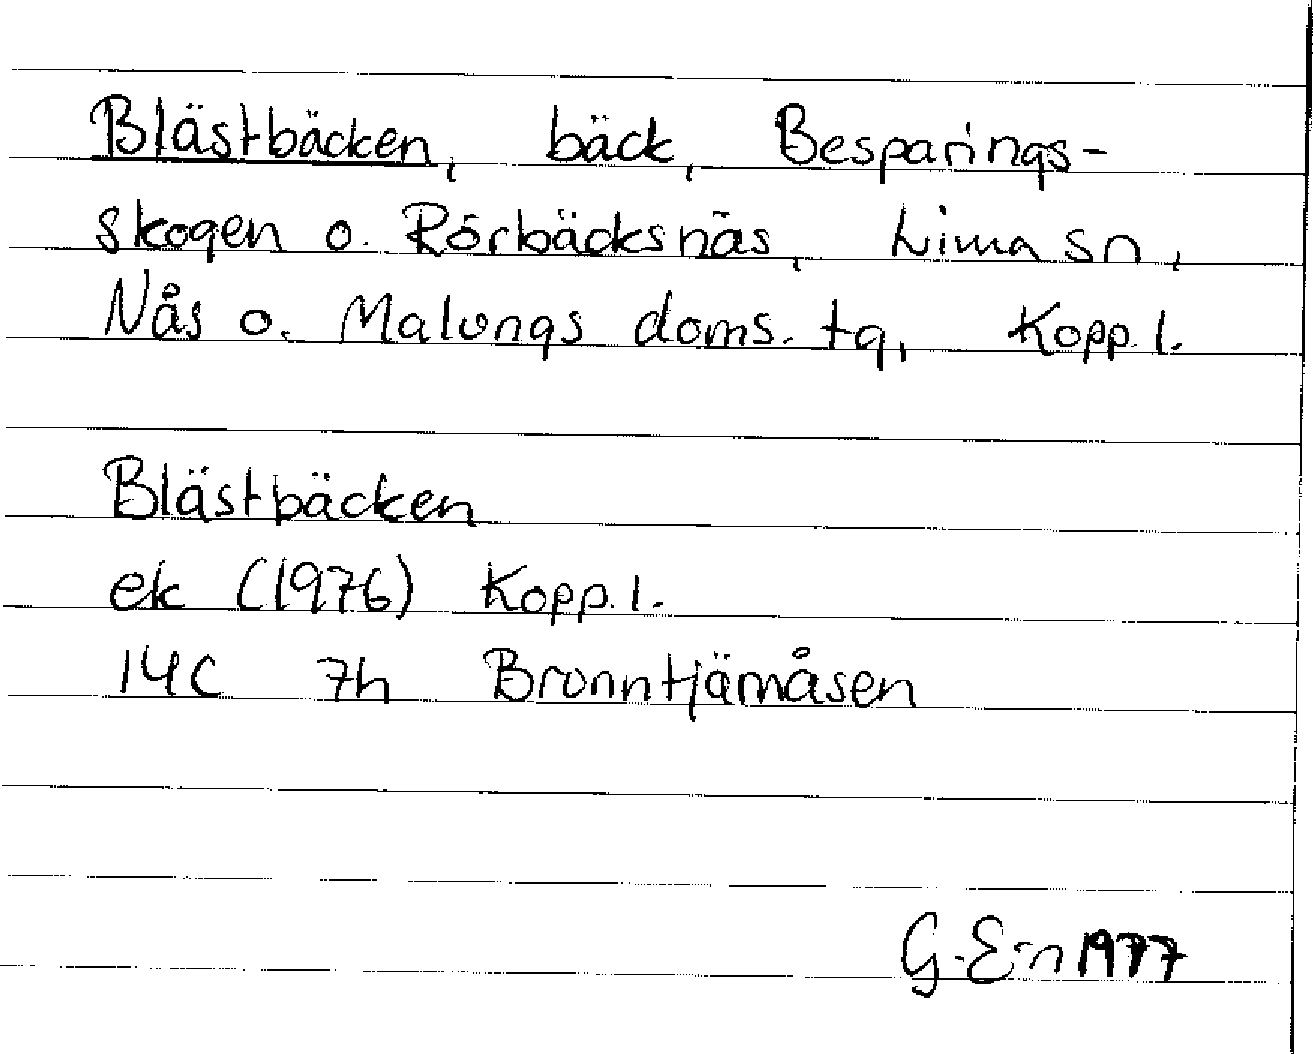 Blästbäcken, bäck, Besparings-
skogen o. Rörbäcksnäs, Lima sn,
Nås o. Malungs doms. tg, Kopp. l.
Blästbäcken
ek (1976) Kopp. l.
14C 7h Bronntjämåsen
G. E-n 1977